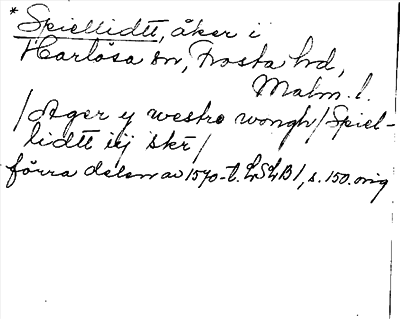 * Spiellidtt, åker i
Harlösa sn, Frosta hd,
Malm. l.
/Ager y westre wongh/ Spiel-
lidtt iij skr/
förra delen av 1570-t. LSLB1, s. 150. orig